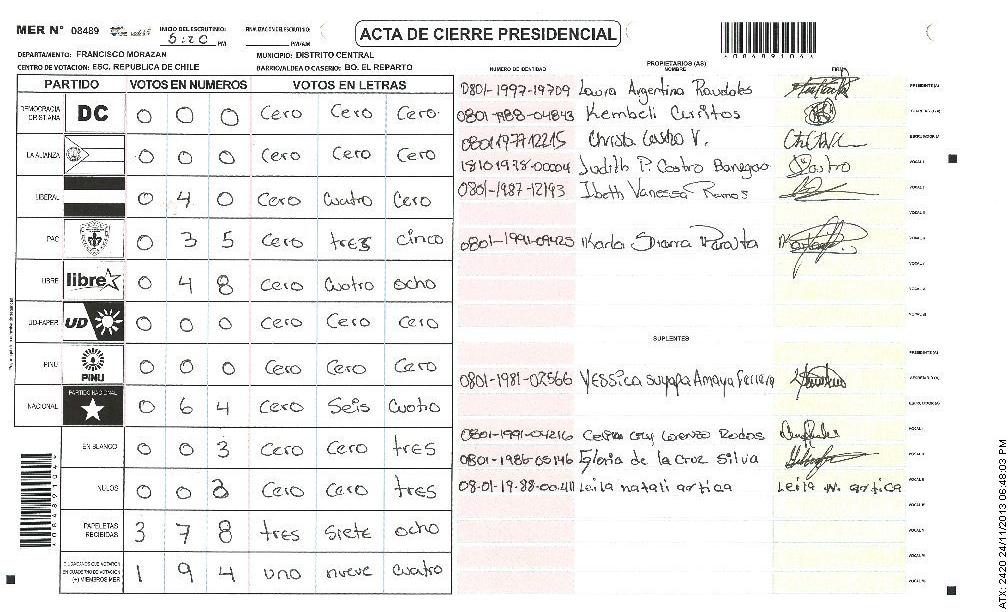 MER N° 08489
INICIO DEL ESCRUTINIO:
5:20 PM
FINALIZACION DEL ESCRUTINIO:
PM/AM
ACTA DE CIERRE PRESIDENCIAL
*08489104*
DEPARTAMENTO: FRANCISCO MORAZAN
MUNICIPIO: DISTRITO CENTRAL
CENTRO DE VOTACION: ESC. REPUBLICA DE CHILE
BARRIO/ALDEA O CASERIO: BO. EL REPARTO
PARTIDO VOTOS EN NUMEROS VOTOS EN LETRAS
DEMOCRACIA CRISTIANA DC 0 0 0 Cero Cero Cero
LA ALIANZA 0 0 0 Cero Cero Cero
LIBERAL 0 4 0 Cero Cuatro Cero
PAC 0 3 5 Cero tres cinco
LIBRE libre 0 4 8 Cero Cuatro ocho
UD-FAPER UD 0 0 0 Cero Cero Cero
PINU PINU 0 0 0 Cero Cero Cero
NACIONAL PARTIDO NACIONAL 0 6 4 Cero Seis Cuatro
EN BLANCO 0 0 3 Cero Cero tres
NULOS 0 0 3 Cero Cero tres
PAPELETAS RECIBIDAS 3 7 8 tres siete ocho
CIUDADANOS QUE VOTARON EN CUADERNO DE VOTACION (+) MIEMBROS MER 1 9 4 uno nueve cuatro
PROPIETARIOS (AS)
NUMERO DE IDENTIDAD NOMBRE FIRMA
0801-1997-19709 Laura Argentina Raudales PRESIDENTE (A)
0801-1988-04843 Kembeli
0801197712215 Christa Castro V. ESCRUTADOR (A)
18101978-00004 Judith P. Castro Banegas VOCAL I
0801-1987-12193 Ibeth Vanessa Ramos VOCAL II
0801-1991-09425 Karla
SUPLENTES
PRESIDENTE (A)
0801-1981-02566 Yessica suyapa Amaya Ferrera SECRETARIO (A)
ESCRUTADOR (A)
0801-1991-04216 Lorenzo Rodas VOCAL I
0801-1986-05146 Gloria de la Cruz Silva
08-01-19-88-00-411 Leila natali artica Leila N. artica
ATX: 2420 24/11/2013 06:48:03 PM